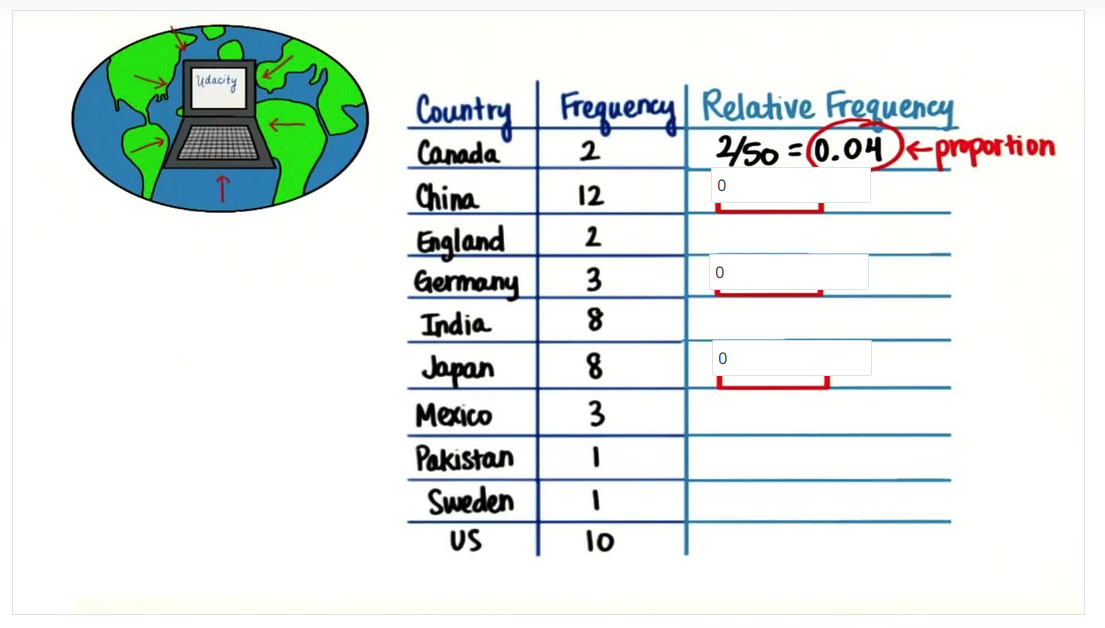 Udacity
Country Frequency Relative Frequency
Canada 2 2/50 = 0.04 ← proportion
China 12 0
England 2
Germany 3 0
India 8
Japan 8 0
Mexico 3
Pakistan 1
Sweden 1
US 10